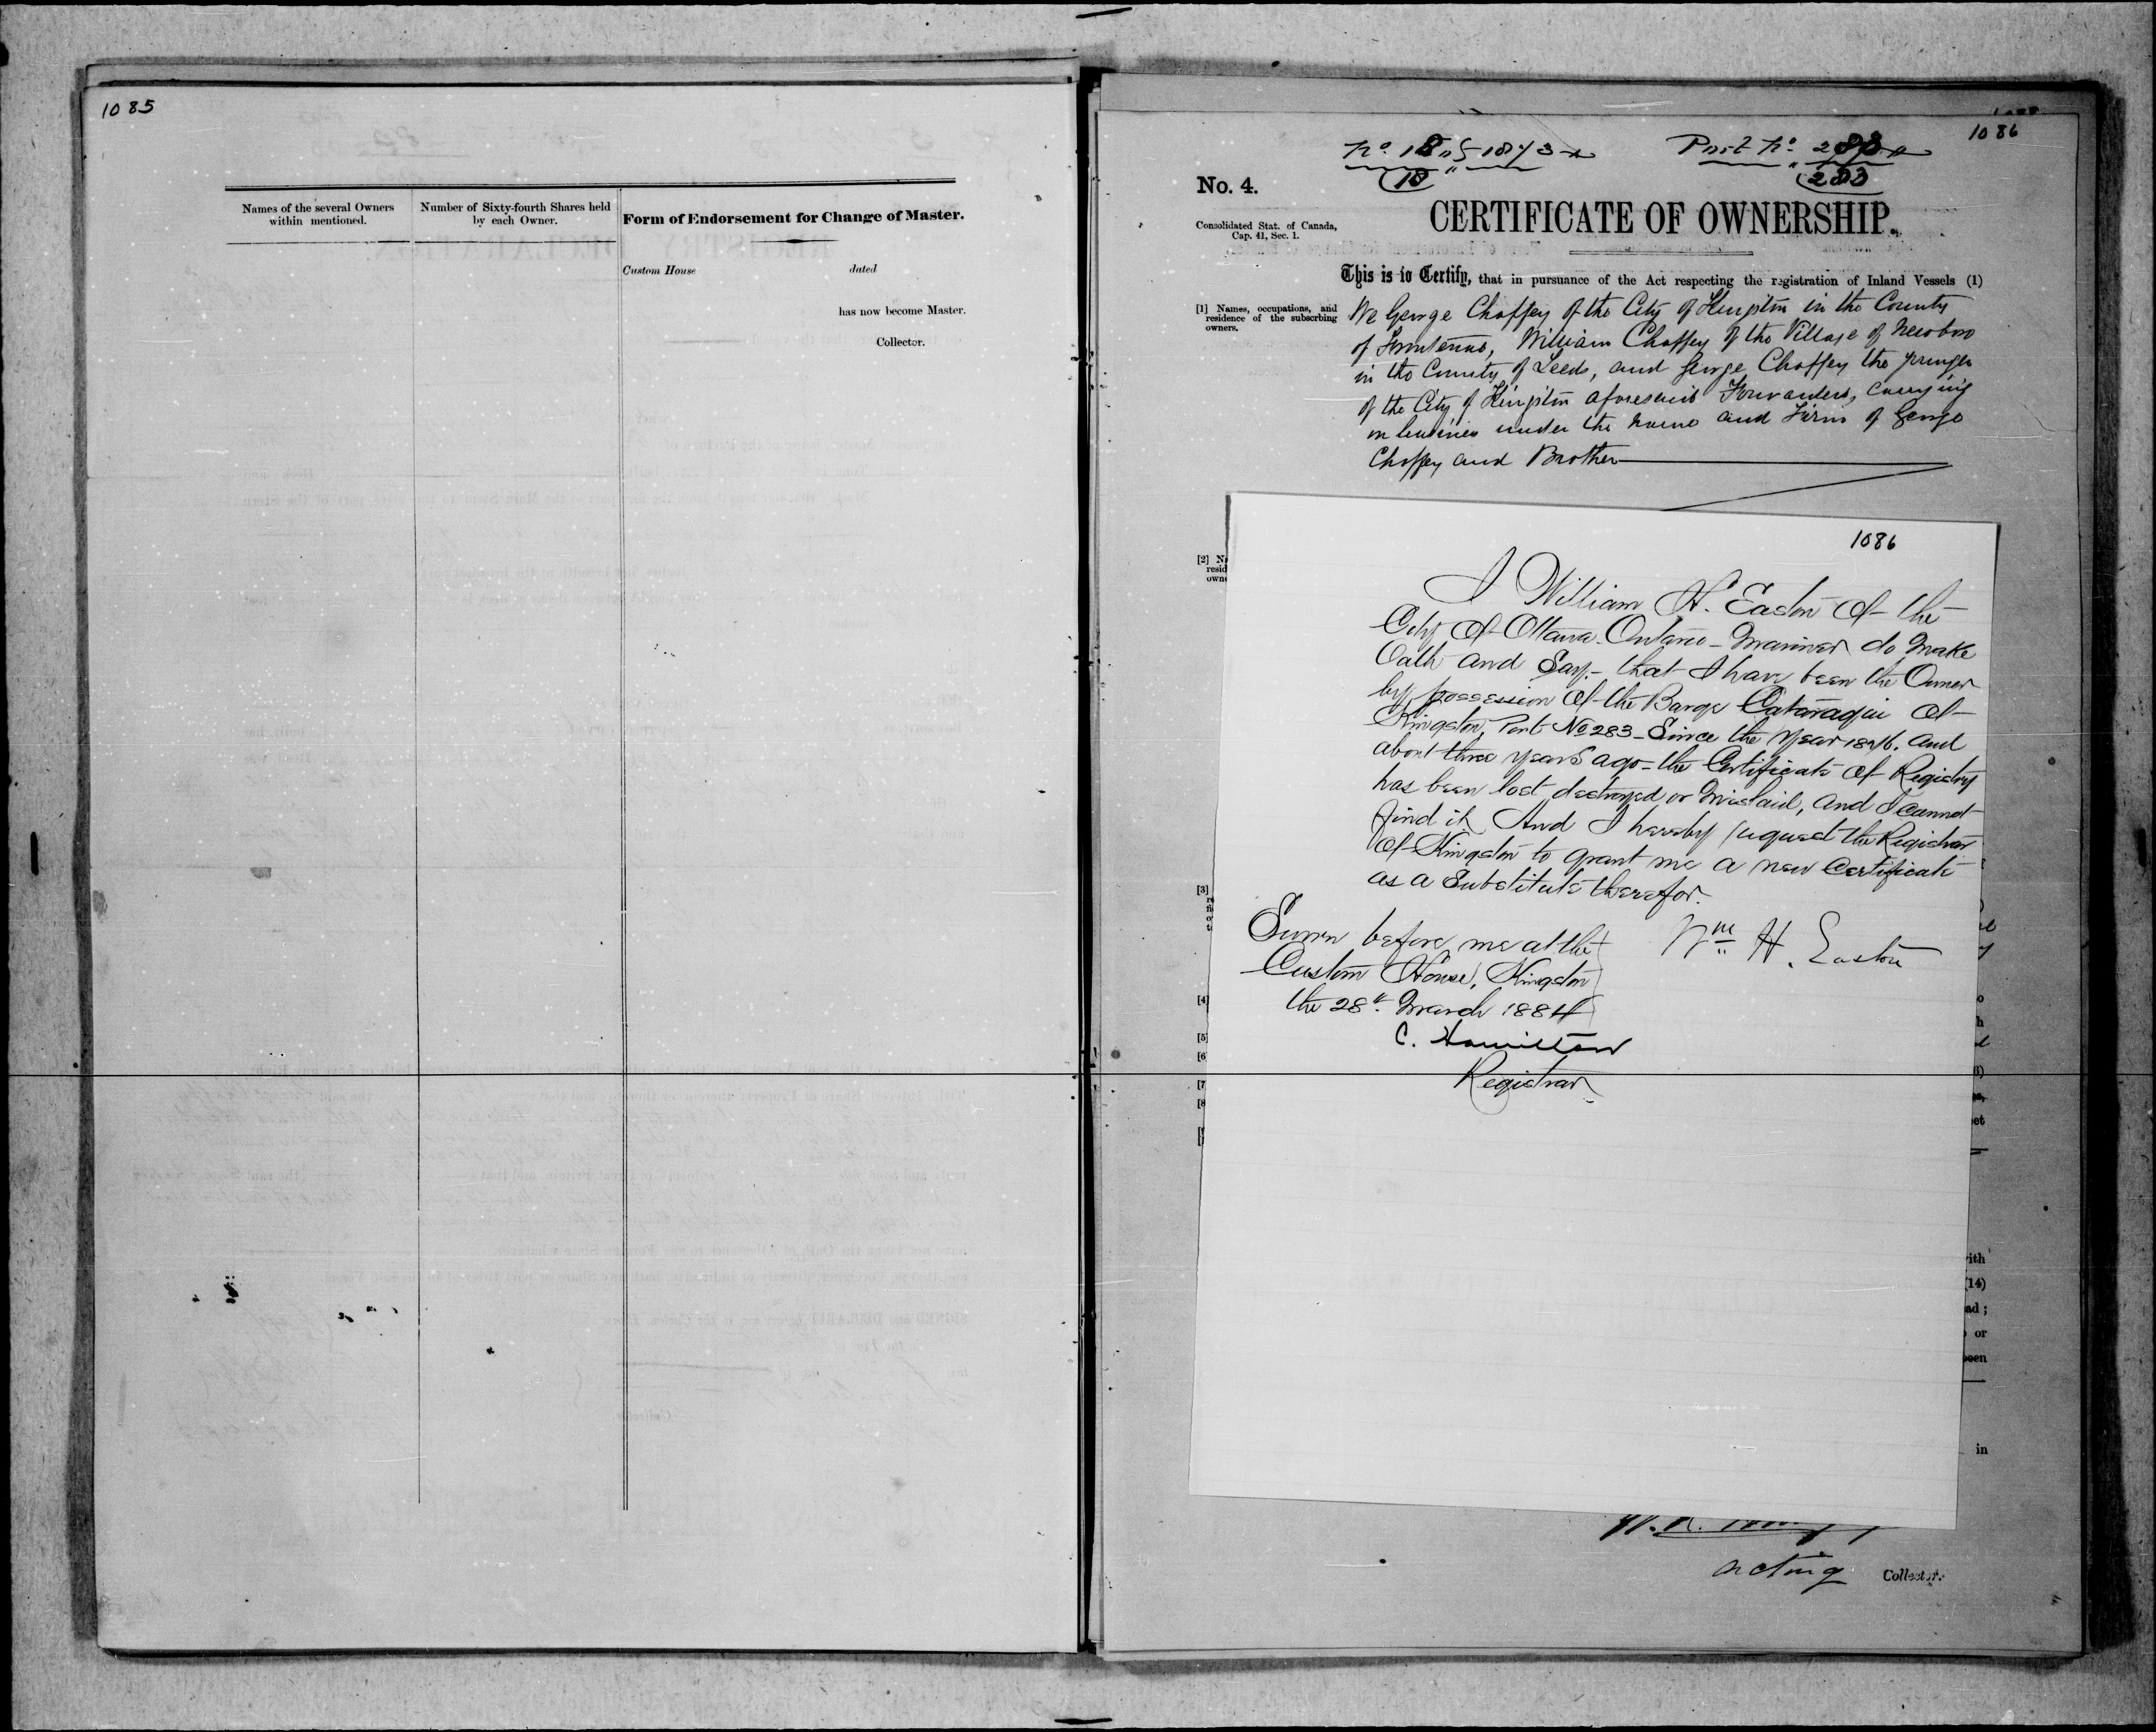 1085
Names of the several Owners
within mentioned.
Number of Sixty-fourth Shares held
by each Owner.
Form of Endorsement for Change of Master.
Custom House
dated
has now become Master.
Collector.
1086
No. 18 of 1873
Port No. 283
(18)
(283)
No. 4.
Consolidated Stat. of Canada,
Cap. 41, Sec. 1.
CERTIFICATE OF OWNERSHIP.
This is to Certify, that in pursuance of the Act respecting the registration of Inland Vessels (1)
[1] Names, occupations, and
residence of the subscrbing
owners.
We George Chaffey of the City of Kingston in the County
of Frontenac, William Chaffey of the Village of Newboro
in the County of Leeds, and George Chaffey the younger
of the City of Kingston aforesaid Forwarders, carrying
on business under the name and Firm of George
Chaffey and Brother
[2]
resid
own
1086
I William H. Easton of the
City of Ottawa Ontario - Mariner do make
Oath and Say - that I have been the Owner
by possession of the Barge Cataraqui of
Kingston, Port No 283 - Since the year 1876. and
about three years ago - the Certificate of Registry
has been lost destroyed or mislaid, and I cannot
find it And I hereby request the Registrar
of Kingston to grant me a new Certificate
as a Substitute therefor.
Sworn before me at the
Custom House, Kingston
the 28th March 1884
Wm H. Easton
C. Hamilton
Registrar
[3]
[4]
[5]
[6]
[7]
[8
et
ith
(14)
ad ;
or
been
in
acting Collector.